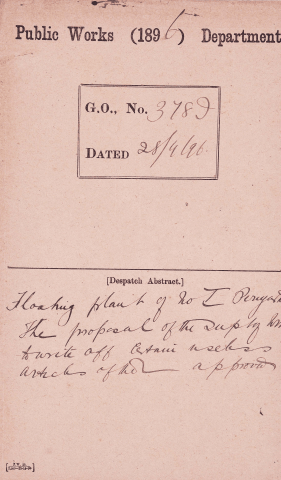 Public Works (1896) Department
G.O., No. 378D
DATED 28/9/96
[Despatch Abstract.]
Floating plant of No I
The proposal of the Sup
to write off certain useless
articles of the approved